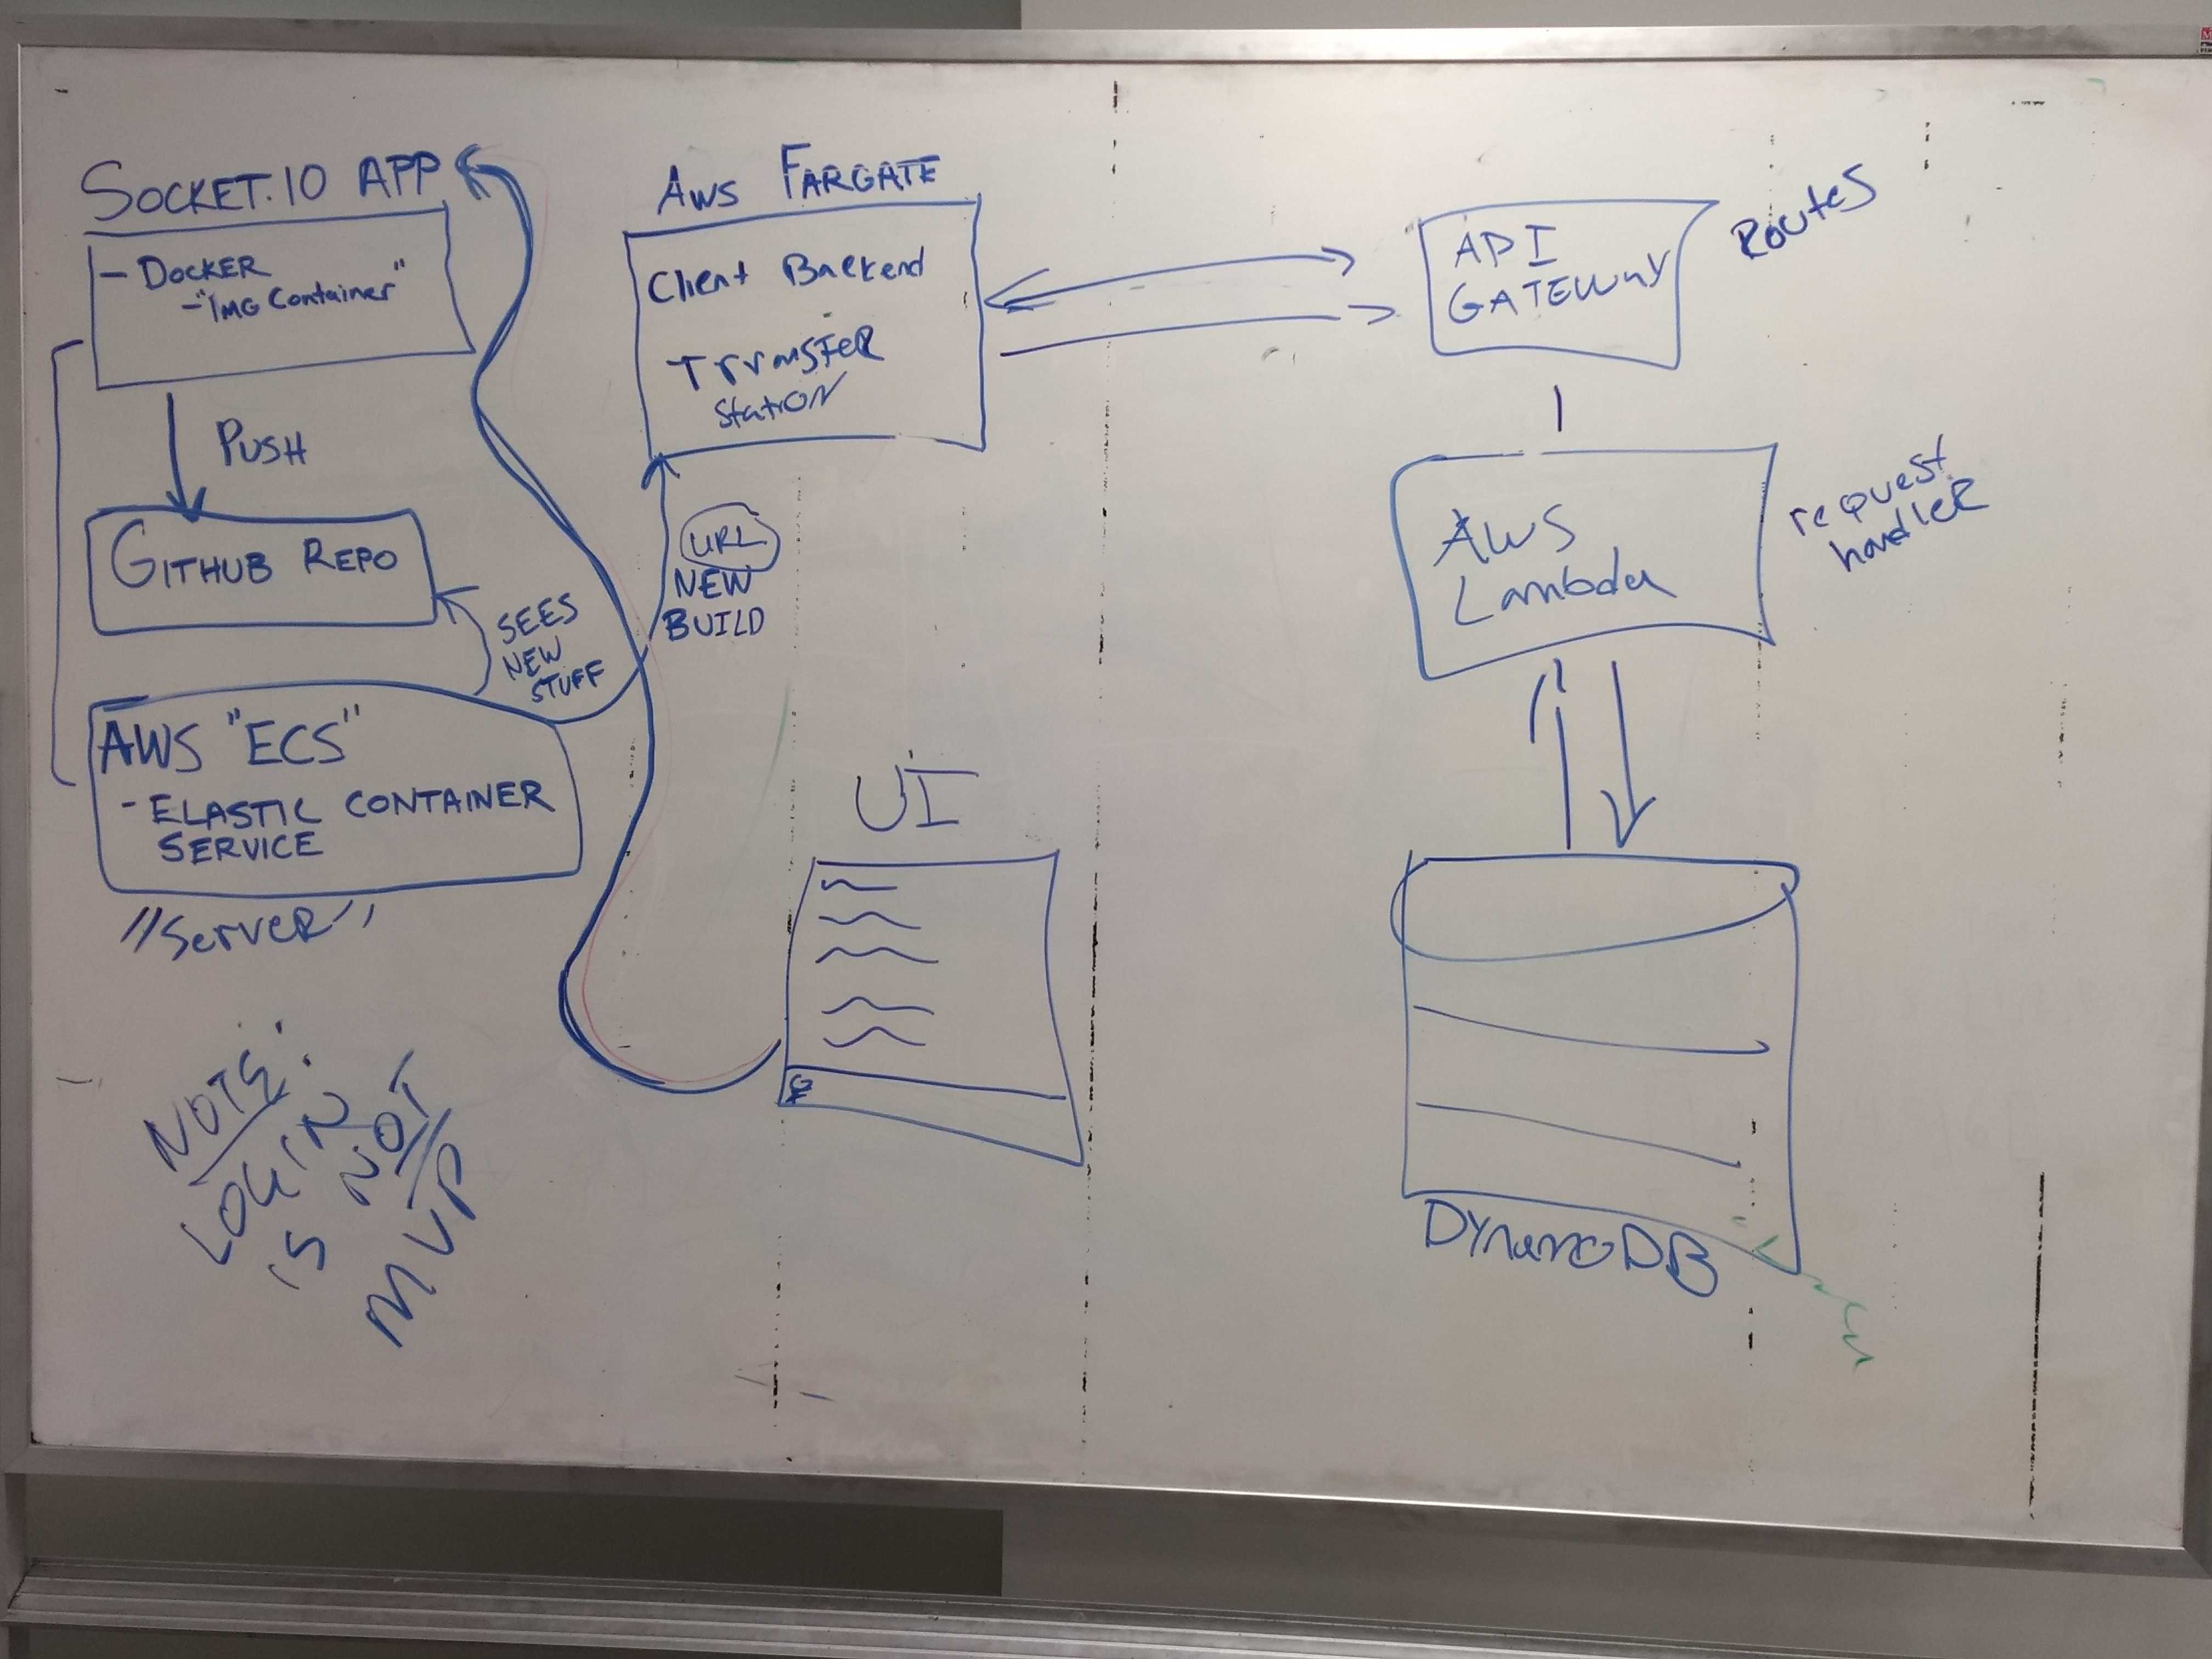 SOCKET.IO APP
- DOCKER
- "IMG Container"
PUSH
GITHUB REPO
SEES
NEW
STUFF
AWS "ECS"
- ELASTIC CONTAINER
SERVICE
"Server"
NOTE:
LOGIN
IS NOT
MVP
AWS FARGATE
Client Backend
Transfer
Station
URL
NEW
BUILD
UI
API
GATEWAY
Routes
AWS
Lambda
request
handler
DynamoDB